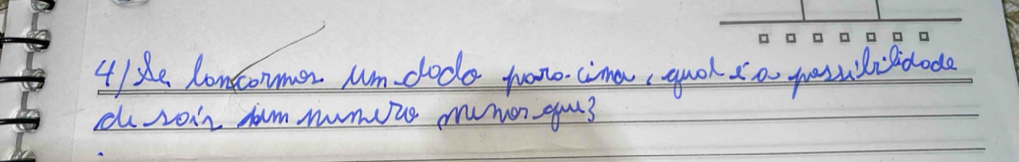 4) Se lançarmos um dado para cima, qual é a possibilidade
de sair um numero menor que 3